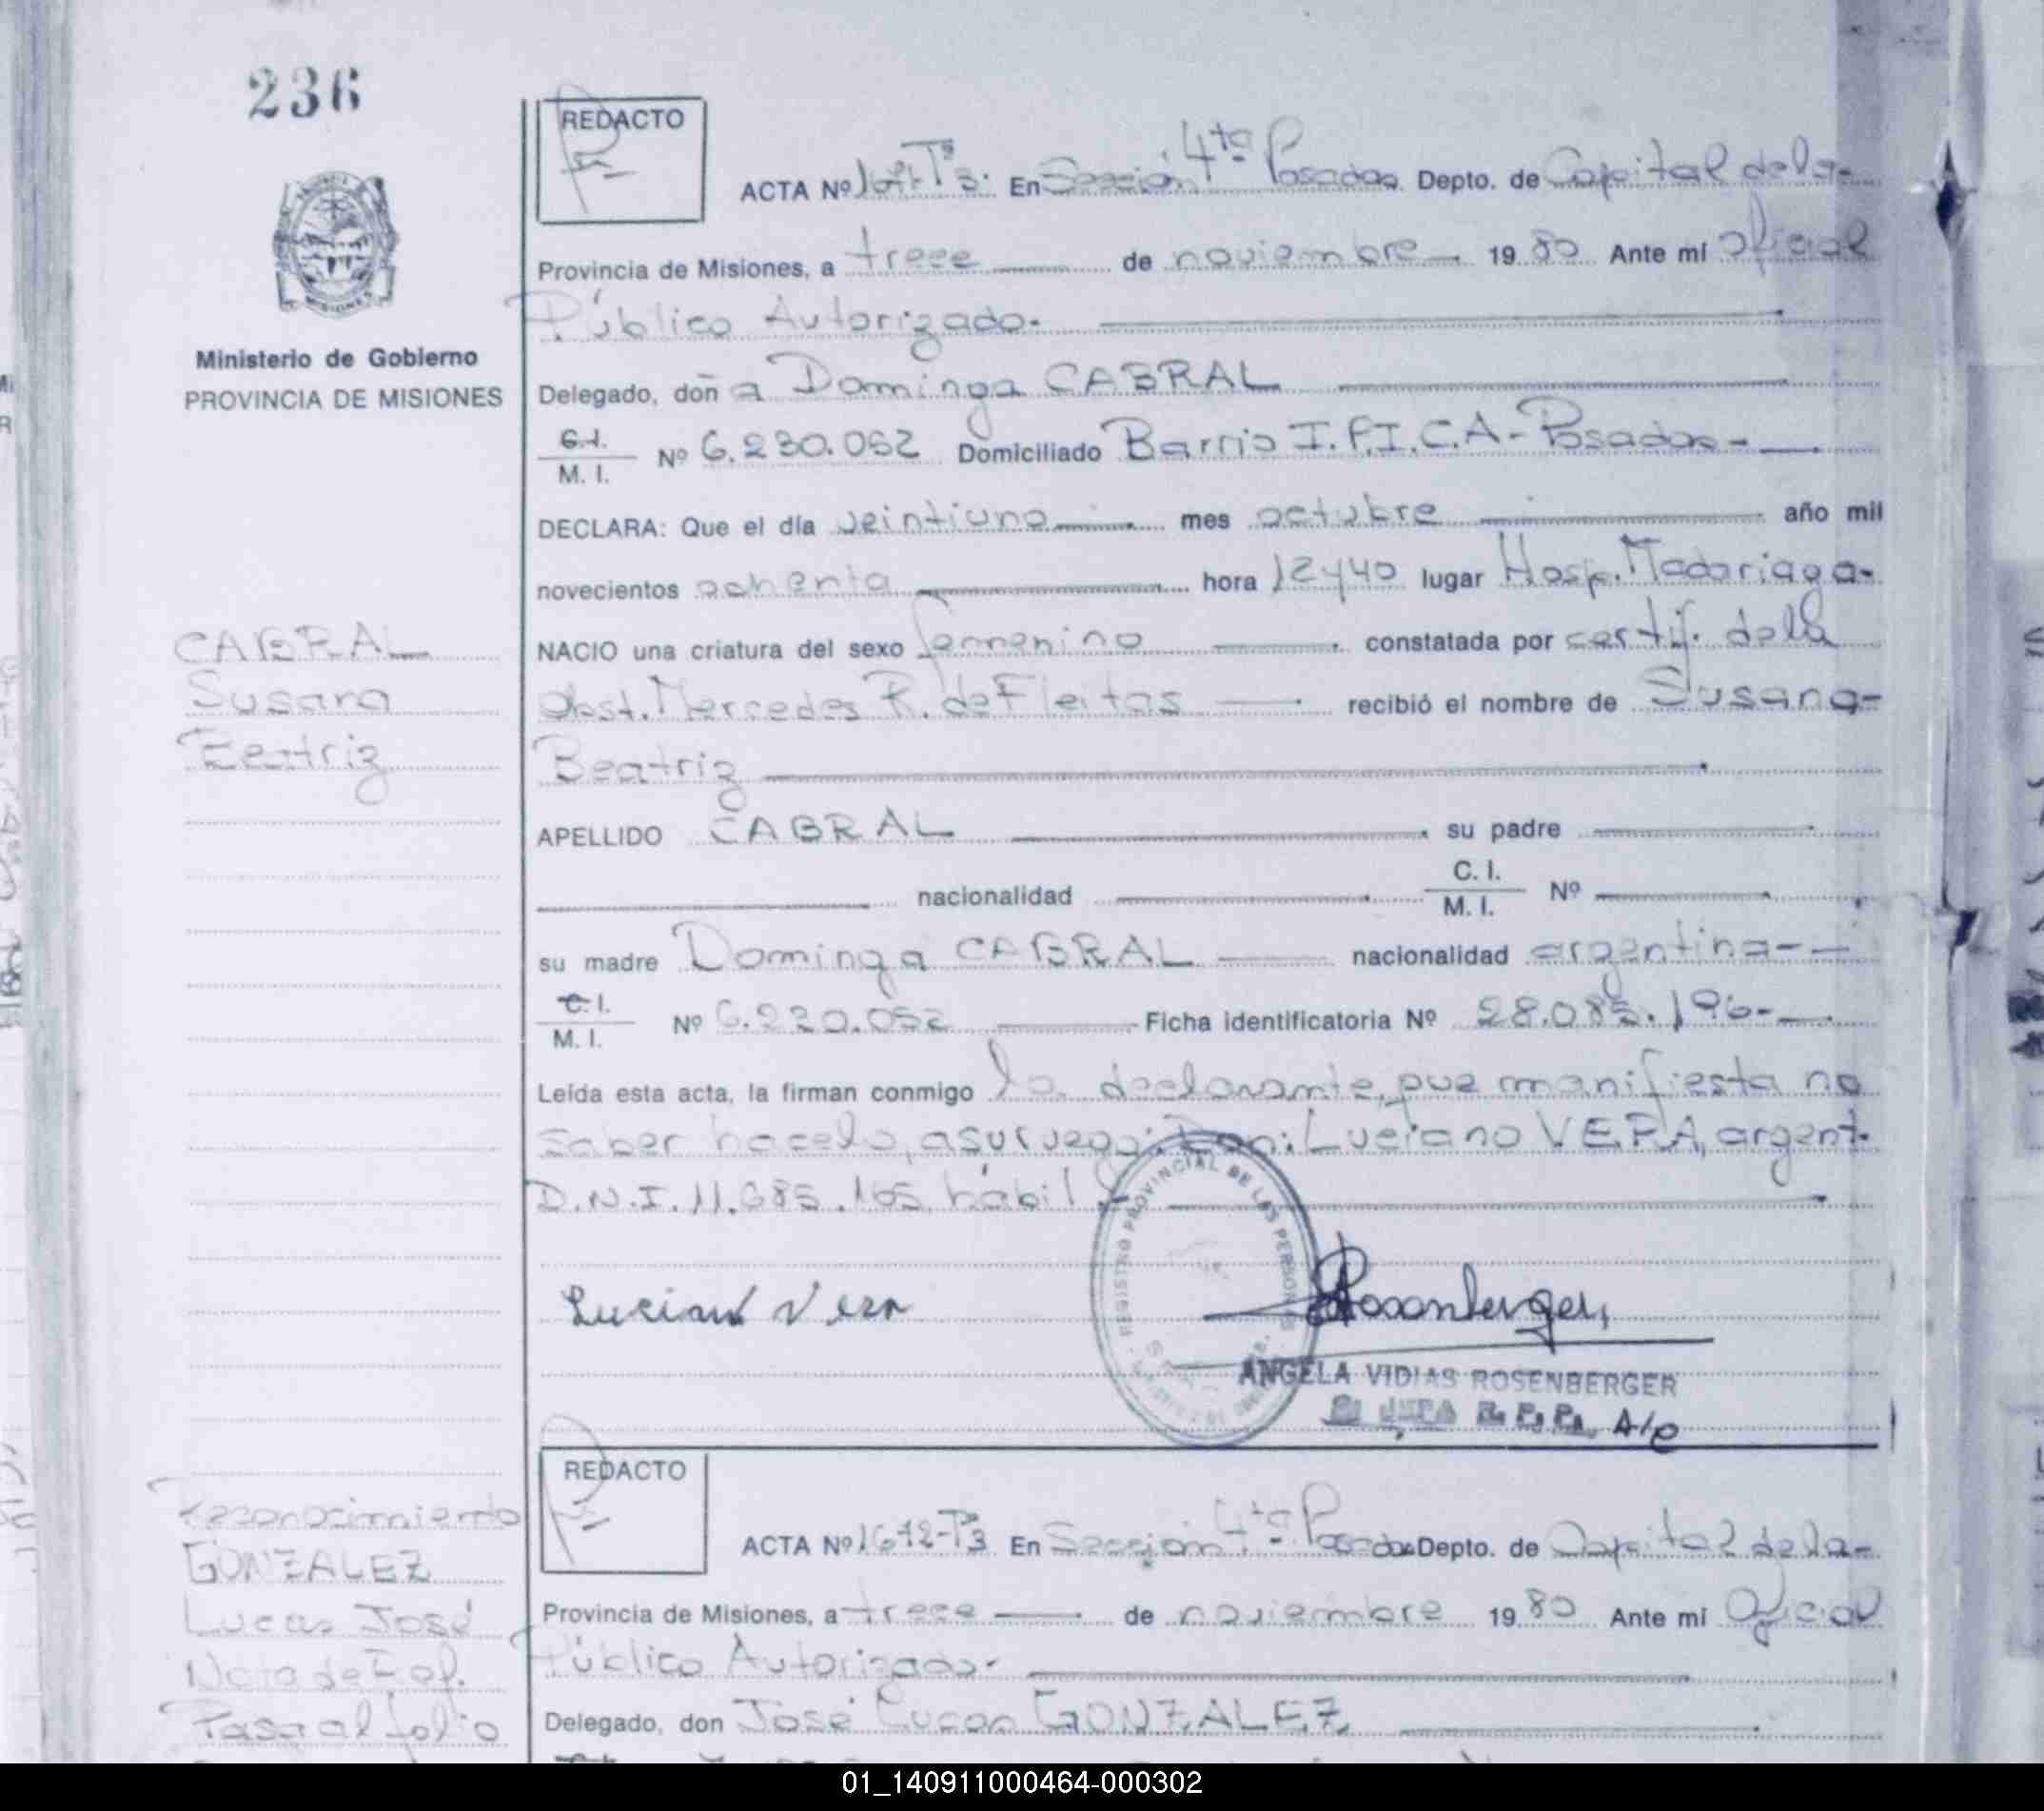 236
REDACTO
ACTA Nº 1671-Tº3. En Sección 4ta Posadas Depto. de Capital de la-
Provincia de Misiones, a trece de noviembre 1980 Ante mí Oficial
Público Autorizado.
Ministerio de Gobierno
PROVINCIA DE MISIONES
Delegado, doña Dominga CABRAL
C.I. / M. I. Nº 6.230.052 Domiciliado Barrio I.F.I.C.A- Posadas-
DECLARA: Que el día veintiuno mes octubre año mil
novecientos ochenta hora 12y40 lugar Hosp. Madariaga-
CABRAL
Susana
Beatriz
NACIO una criatura del sexo femenino constatada por certif. de la
Obst. Mercedes R. de Fleitas recibió el nombre de Susana-
Beatriz
APELLIDO CABRAL su padre
nacionalidad C. I. / M. I. Nº
su madre Dominga CABRAL nacionalidad argentina-
C.I. / M. I. Nº 6.230.052 Ficha identificatoria Nº 28.085.196-
Leída esta acta, la firman conmigo la declarante, que manifiesta no
saber hacelo, a su ruego: Don: Luciano VERA, argent.
D.N.I. 11.685.165, hábil.
REGISTRO PROVINCIAL DE LAS PERSONAS
Luciano Vera
Rosenberger
ANGELA VIDIAS ROSENBERGER
R. P. P. A/c
REDACTO
ACTA Nº 1672-Tº3 En Sección 4ta Posadas Depto. de Capital de la-
Provincia de Misiones, a trece de noviembre 1980 Ante mí Oficial
Público Autorizado.
Delegado, don José Lucas GONZALEZ
Reconocimiento
GONZALEZ
Lucas José
Nota de Ref.
Pasa al folio
01_140911000464-000302